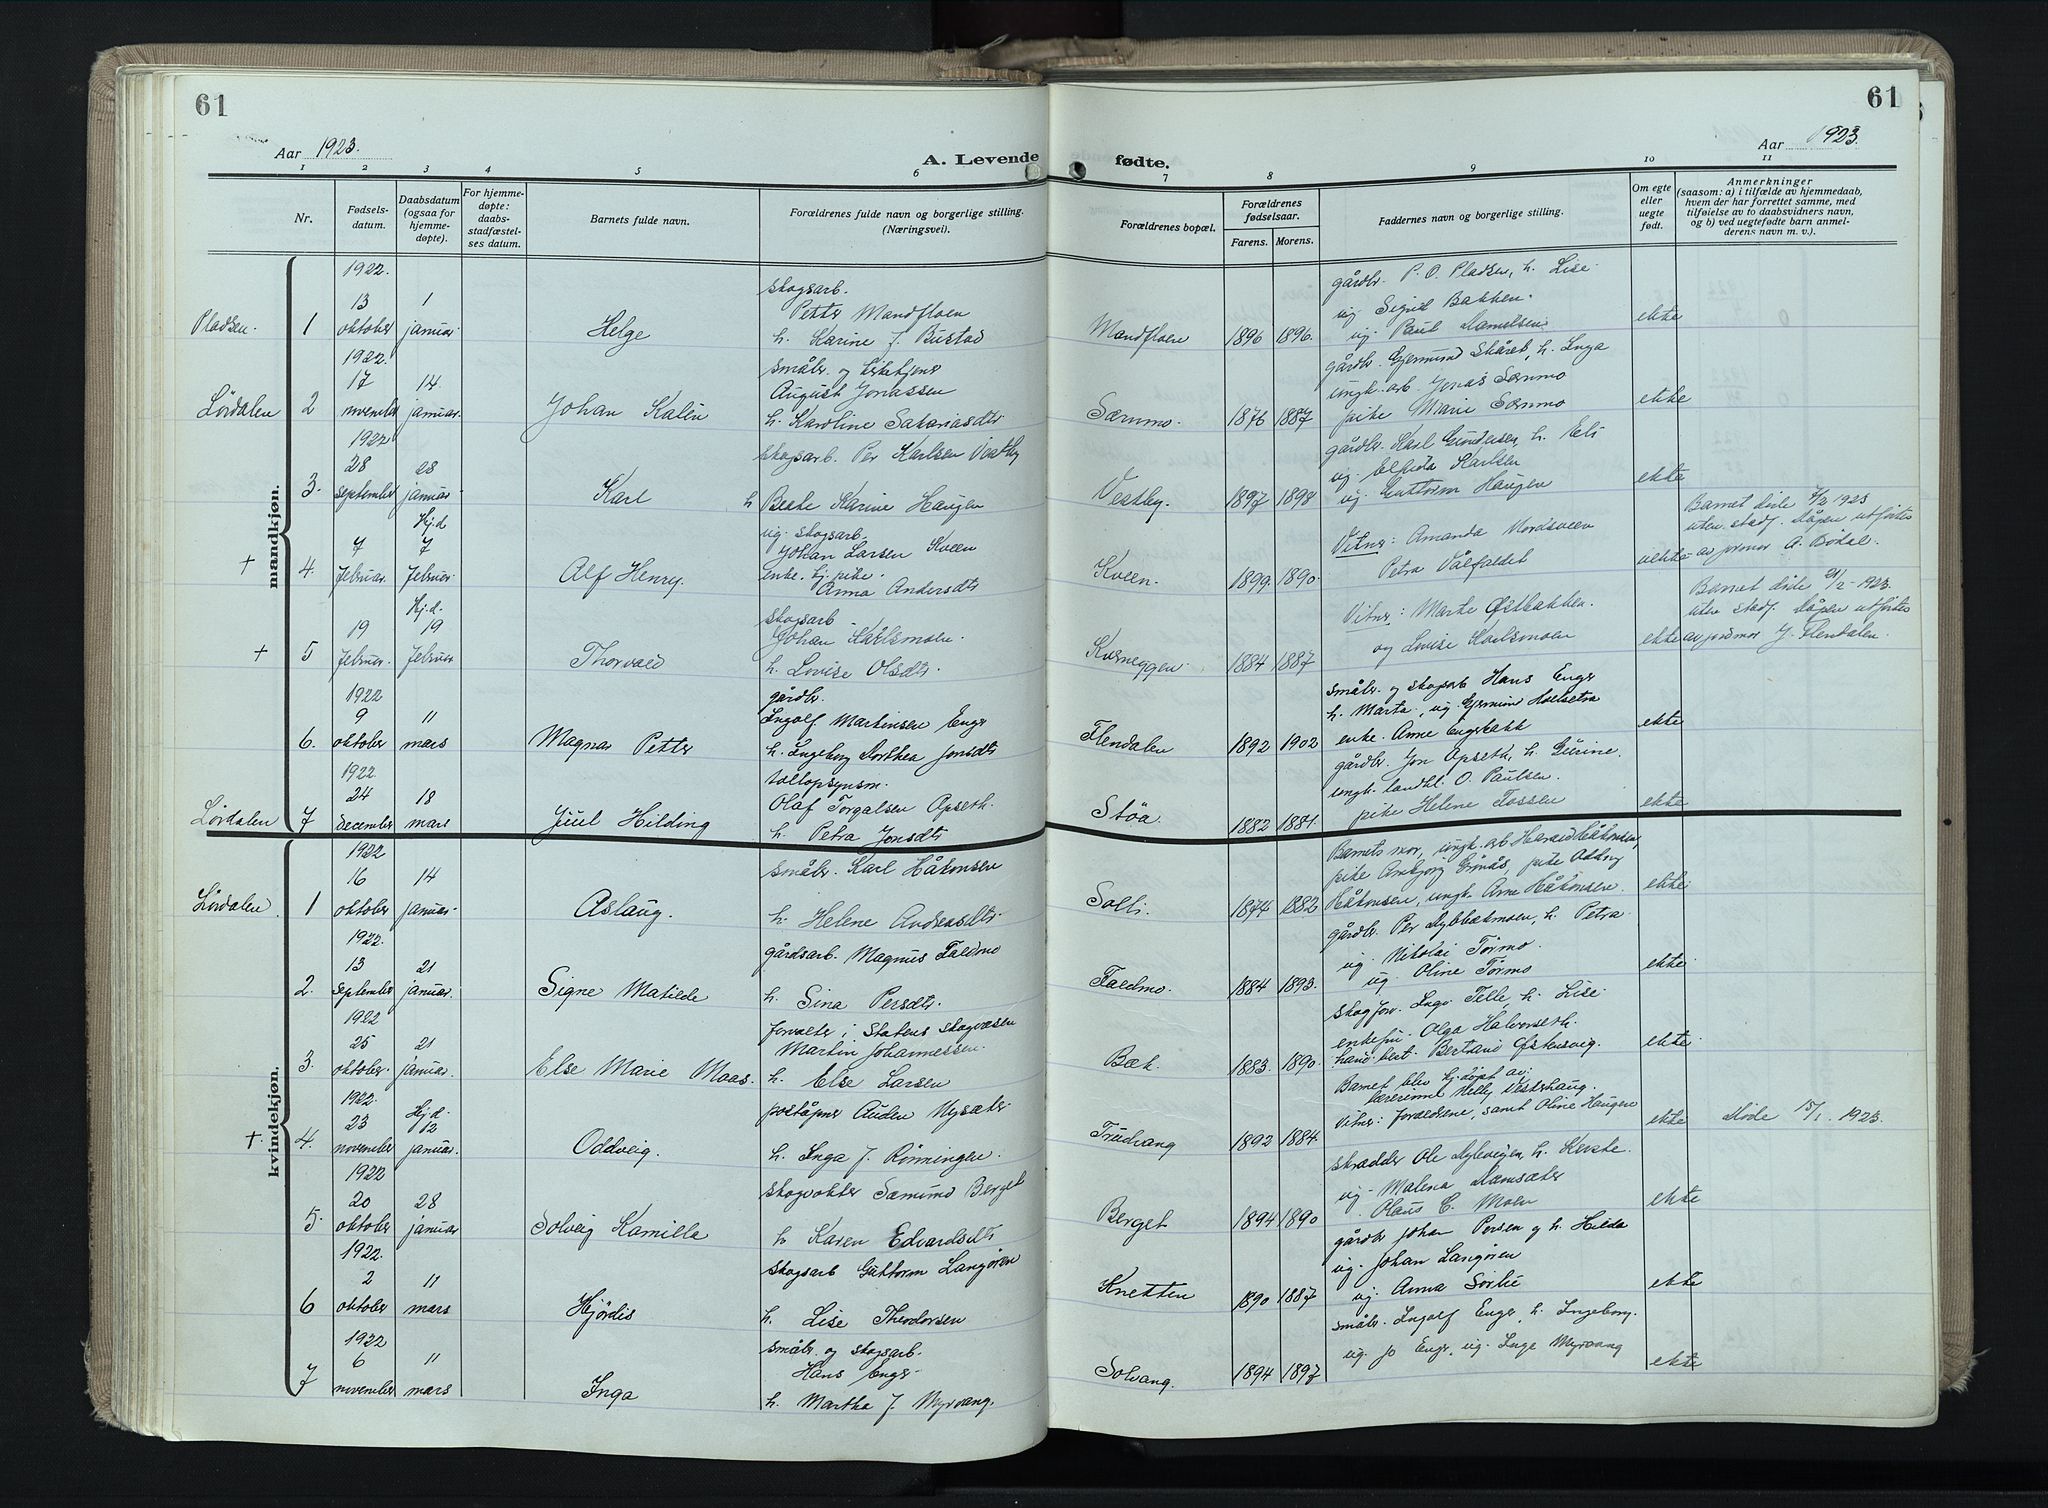 61
61
Aar 1923.
A. Levende fødte.
Aar 1923.
1 2 3 4 5 6 7 8 9 10 11
Nr.
Fødsels-
datum.
Daabsdatum
(ogsaa for
hjemme-
døpte).
For hjemme-
døpte:
daabs-
stadfæstel-
ses datum.
Barnets fulde navn.
Forældrenes fulde navn og borgerlige stilling.
(Næringsvei).
Forældrenes bopæl.
Forældrenes
fødselsaar.
Farens. Morens.
Faddernes navn og borgerlige stilling.
Om egte
eller
uegte
født.
Anmerkninger
(saasom: a) i tilfælde av hjemmedaab,
hvem der har forrettet samme, med
tilføielse av to daabsvidners navn,
og b) ved uegtefødte barn anmel-
derens navn m. v.).
mandkjøn.
Pladsen.
1
1922.
13
oktober
1
januar
Helge
skogsarb.
Petter Mandfloen
h. Karine f. Bustad
Mandfloen
1896 1896.
gårdbr. P. O. Pladsen, h. Lise
ug. Sigrid Bakken.
ug. Paul Danielsen
ekte
Lørdalen
2
1922.
17
november
14
januar.
Johan Kalén
småbr. og kirketjener
August Jonassen
h. Karoline Sakariasdtr
Særnmo.
1876 1887
gårdbr. Gjermund Skåret, h. Inga
ungk. arb. Jonas Særnmo
pike Marie Særnmo
ekte
3.
1922
28
september
28
januar
Karl
skogsarb. Per Karlsen Vestby
h Beate Karine Haugen
Vestby.
1897 1898
gårdbr. Karl Gundersen, h. Eli
ug. Elfrida Karlsen
ug. Guttorm Haugen
ekte
+
4.
7
februar
Hj.d
7
februar
Alf Henry.
ug. skogsarb.
Johan Larsen Kveen
enke. hj. pike.
Anna Andersdtr
Kveen.
1899. 1890.
Vitner: Amanda Nordsveen
Petra Vålfaldet
uekte
Barnet døde 9/2 1923
uten stadf. Dåpen utførtes
av jormor A. Bokal.
+
5
19
februar.
Hj.d.
19
februar
Thorvald
skogsarb
Johan Karlsmoen.
h. Lovise Olsdtr.
Kverneggen.
1884 1887
Vitner: Marte Østbakken.
og Lovise Karlsmoen
ekte
Barnet døde 21/2-1923.
uten stadf. Dåpen utførtes
av jordmor J. Flendalen.
6.
1922
9
oktober
11
mars
Magnar Petter
gårdbr.
Ingolf Martinsen Enger
h. Ingeborg Dorthea Jonsdtr
Flendalen
1892 1902
småbr. og skogsarb Hans Enger
h. Marta, ug. Gjermund
enke. Anne Engerbakk
ekte
Lørdalen
7
1922.
24
december
18
mars
Juul Hilding
tollopsynsm.
Olaf Torgalsen Opseth.
h. Petra Jonsdtr
Støa.
1882 1881.
gårdbr. Jon Opseth, h. Gurine,
ungk. landhl. O. Paulsen.
pike Helene Fossen
ekte
kvindekjøn.
Lørdalen.
1
1922
16
oktober
14
januar
Aslaug.
småbr. Karl Håkonsen
h. Helene Andreasdtr.
Solli.
1874 1882
Barnets mor, ungk. arb Harald Håkonsen,
pike Ambjørg Grønås, pike Oddny
Håkonsen, ungk. Arne Håkonsen.
ekte
2.
1922.
13
september
21
januar.
Signe Matilde
gårdsarb. Magnus Faldmo
h. Sina Persdtr.
Faldmo.
1884 1893.
gårdbr. Per Dybbækmoen, h. Petra.
ug. Nikolai Tørmo.
ug Oline Tørmo
ekte
3.
1922
25
oktober.
21
januar.
Else Marie Maas.
forvalter i Statens skogvæsen
Martin Johannessen.
h. Else Larsen
Bæk.
1883. 1890.
skogforv. Ingv. Telle, h. Lise.
enkefru. Olga Halvorseth.
hand. best. Bertrand Østensvig.
ekte.
+
4.
1922
23
november
Hj.d.
12
januar.
Oddveig.
poståpner Auden Nysæter
h. Inga f. Rønningen.
Trudvang
1892 1884.
Barnet blev hj.døpt av
lærerinne Helly Vesterhaug.
Vitner: forældrene, samt Oline Haugen
ekte
Døde 15/1. 1923.
5.
1922
20
oktober
28
januar
Solveig Kamilla
skogvokter Sæmund Berget
h Karen Edvardsdtr
Berget
1894 1890
skrædder Ole Dyleveien h. Kerste.
ug. Malena Damsæter
. Olaus C. Moen
ekte
6
1922.
2
oktober
11
mars
Hjørdis
skogsarb Guttorm Langøren
h. Lise Theodorsen
Knetten
1890 1887
gårdbr Johan Persen og h. Hilda
ug. Johan Langøren
ug. Anna Sorlie
ekte
7
1922
6
november
11
mars
Inga
småbr. og skogsarb.
Hans Enger
h. Martha f. Myrvang.
Solvang.
1894 1897
småbr. Ingolf Enger, h. Ingeborg.
ug. Jo Enger, ug. Inge Myrvang
ekte